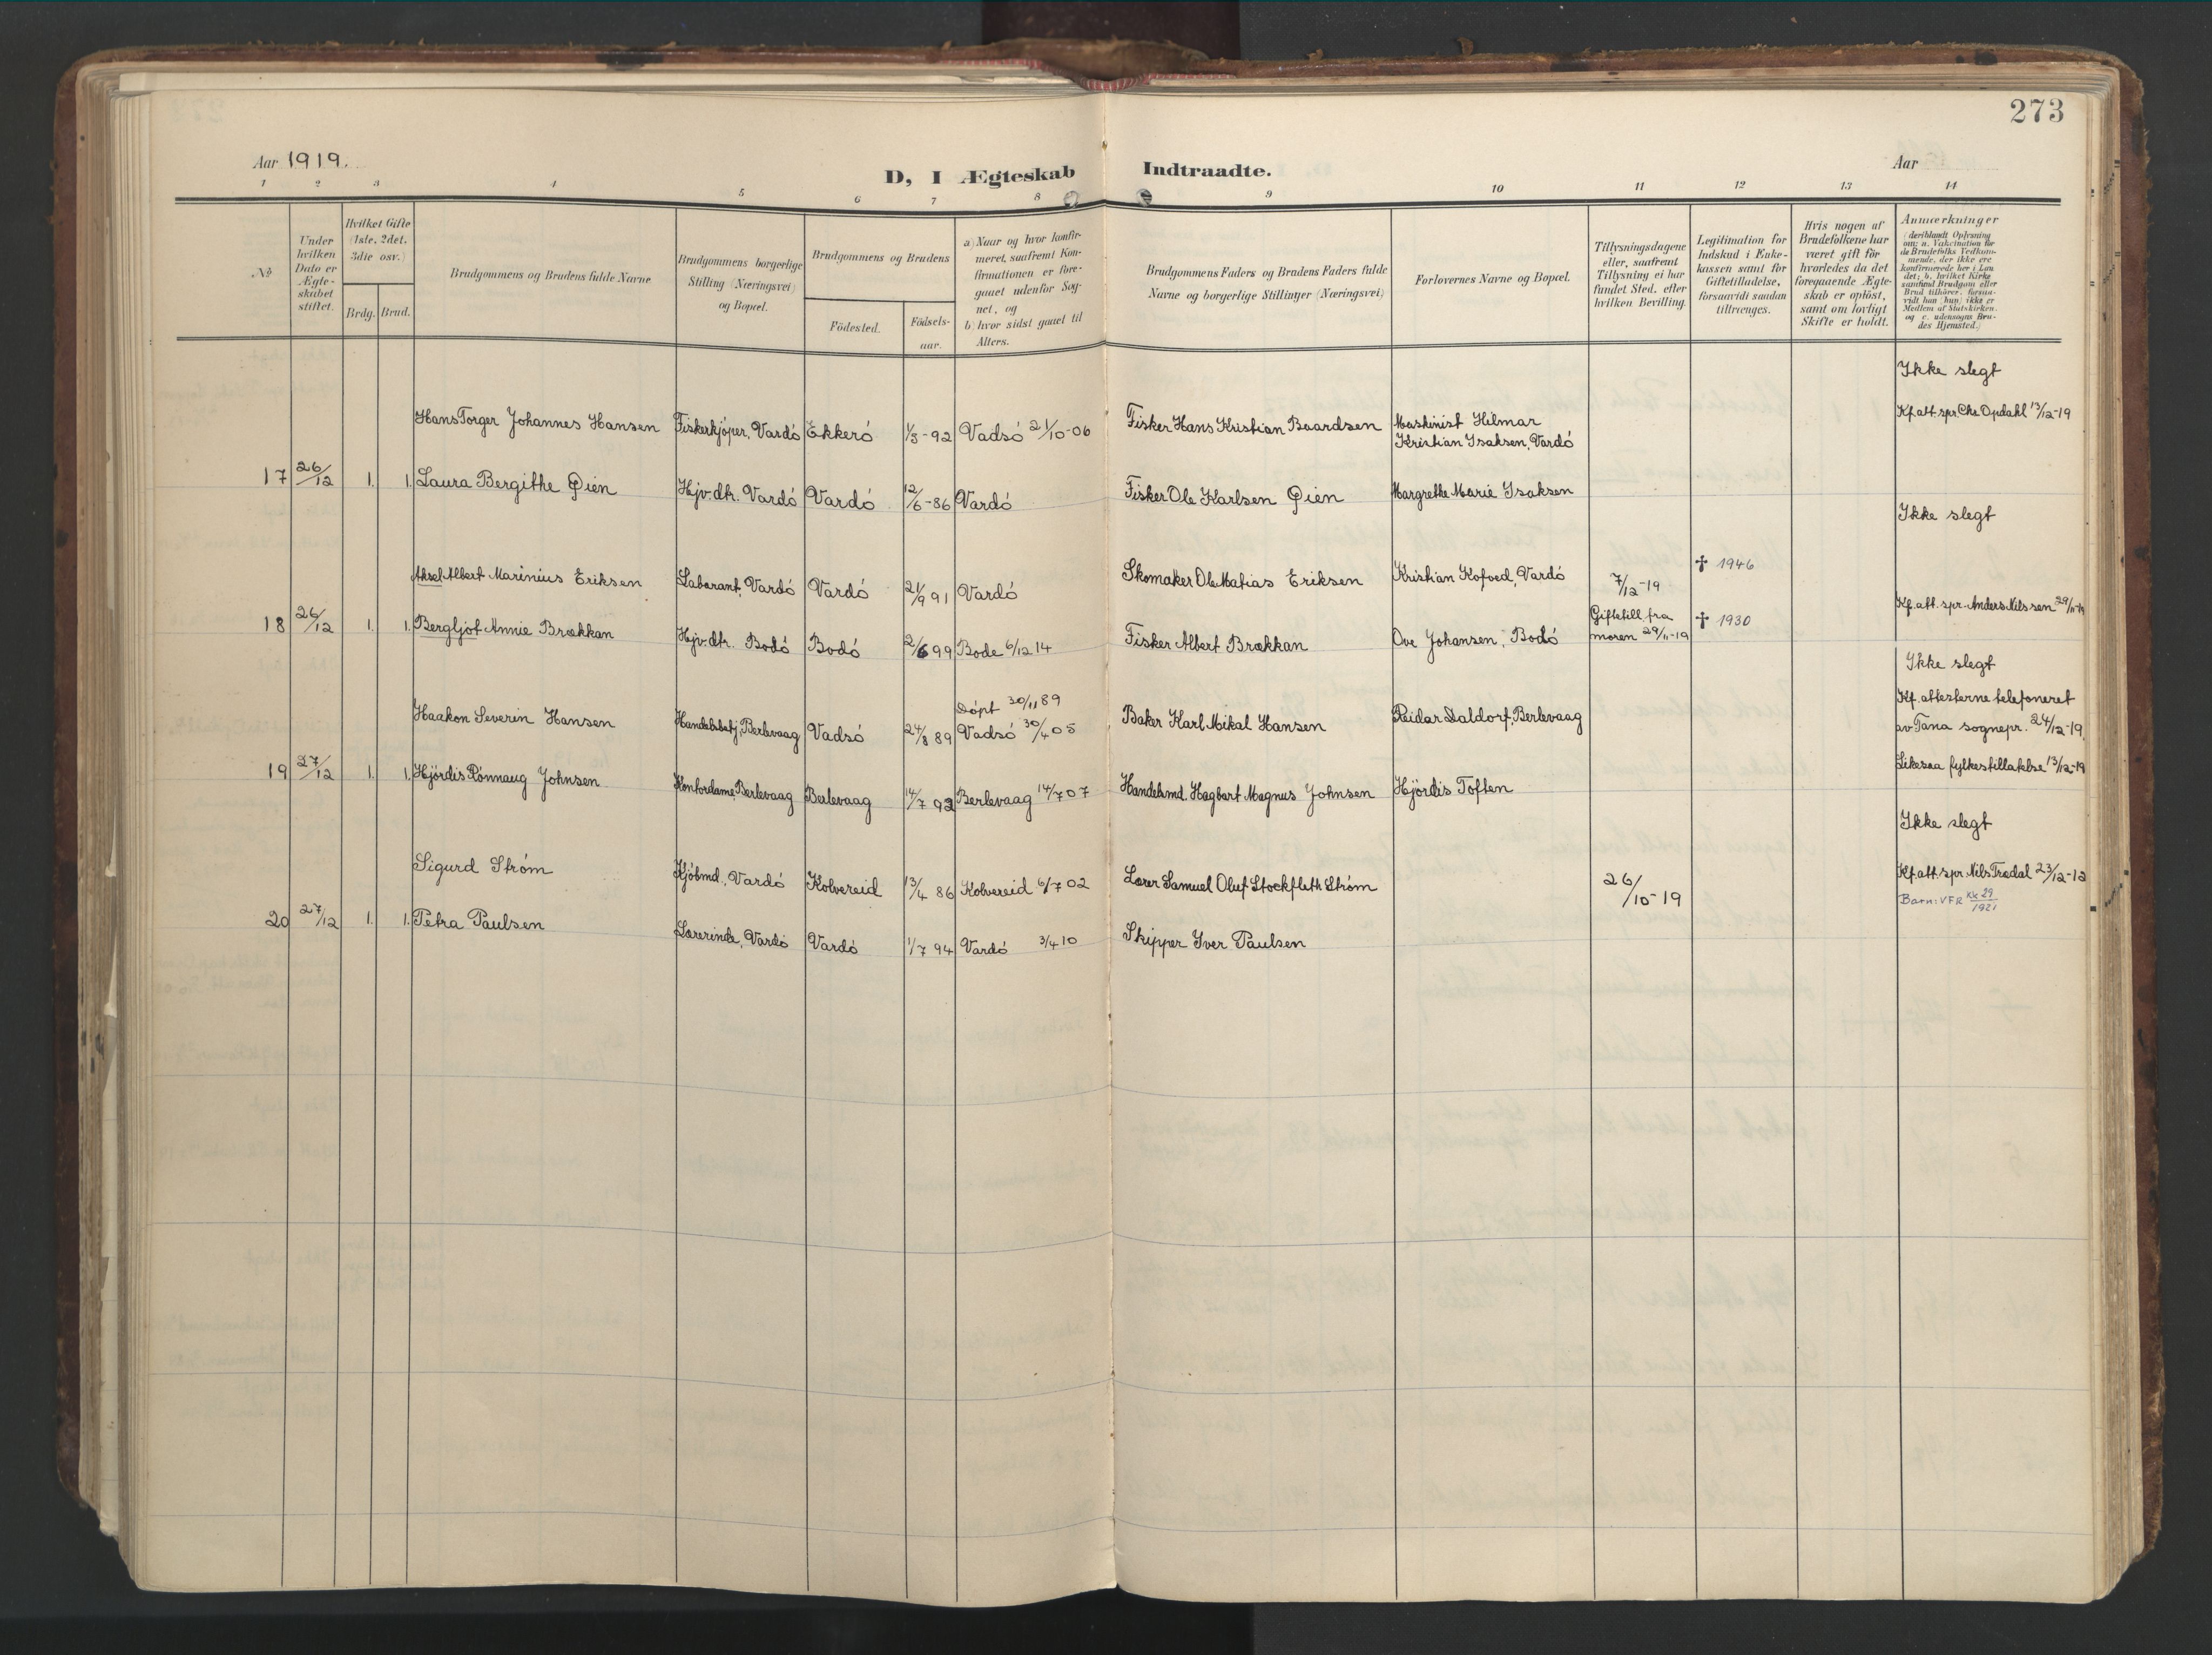 273
Aar 1919.
D, I Ægteskab Indtraadte.
Aar
1 2 3 4 5 6 7 8 9 10 11 12 13 14
No
Under hvilken Dato er Ægteskabet stiftet.
Hvilket Gifte (1ste, 2det, 3die osv.)
Brdg. Brud.
Brudgommens og Brudens fulde Navne
Brudgommens borgerlige Stilling (Næringsvei) og Bopæl.
Brudgommens og Brudens
Födested.
Födselsaar.
a) Naar og hvor konfirmeret, saafremt Konfirmationen er foregaaet udenfor Sognet, og
b) hvor sidst gaaet til Alters.
Brudgommens Faders og Brudens Faders fulde Navne og borgerlige Stillinger (Næringsvei)
Forlovernes Navne og Bopæl.
Tillysningsdagene eller, saafremt Tillysning ei har fundet Sted, efter hvilken Bevilling.
Legitimation for Indskud i Enkekassen samt for Giftetilladelse, forsaavidt saadan tiltrænges.
Hvis nogen af Brudefolkene har været gift för hvorledes da det foregaaende Ægteskab er oplöst, samt om lovligt Skifte er holdt.
Anmærkninger (deriblandt Oplysning om: a. Vakcination för de Brudefolks Vedkommende, der ikke ere konfirmerede her i Landet; b. hvilket Kirkesamfund Brudgom eller Brud tilhörer, forsaavidt han (hun) ikke er Medlem af Statskirken. og c. udensogns Brudes Hjemsted.)
Ikke slegt
Hans Torger Johannes Hansen Fiskerkjöper, Vardö Ekkerö 1/3-92 Vadsö 21/10-06 Fisker Hans Kristian Baardsen Maskinist Hilmar Kristian Isaksen, Vardö Kf. att. spr. Chr Opdahl 13/12-19
17 26/12 1. 1. Laura Bergithe Øien Hjv. dtr. Vardö Vardö 12/6-86 Vardö Fisker Ole Karlsen Øien Margrethe Marie Isaksen
Ikke slegt
Aksel Albert Marinius Eriksen Laborant, Vardö Vardö 21/9 91 Vardö Skomaker Ole Matias Eriksen Kristian Kofoed, Vardö 7/12-19 ✝ 1946
18 26/12 1. 1. Bergljot Annie Brækkan Hjv. dtr. Bodö Bodö 2/6 99 Bodø 6/12 14 Fisker Albert Brækkan Ove Johansen, Bodö Giftetill. fra moren 29/11-19 ✝ 1930 Kf. att. spr. Anders Nilssen 29/11-19
Ikke slegt
Döpt 30/11 89
Haakon Severin Hansen Handelsbetj, Berlevaag Vadsö 24/8 89 Vadsö 30/4 05 Baker Karl Mikal Hansen Reidar Daldorf, Berlevaag Kf. attesterne telefoneret av Tana sognepr. 24/12-19.
19 27/12 1. 1. Hjördis Rönnaug Johnsen Kontordame, Berlevaag Berlevaag 14/7 92 Berlevaag 14/7 07 Handelsmd. Hagbart Magnus Johnsen Hjördis Toften Likesaa fylkestillatelse 13/12-19
Ikke slegt
Sigurd Ström Kjöbmd., Vardö Kolvereid 13/4 86 Kolvereid 6/7 02 Lærer Samuel Oluf Stockfleth Ström 26/10-19 Kf. att. spr. Nils Trædal 23/12-12
Barn: VFR Kk 29/1921
20 27/12 1. 1. Petra Paulsen Lærerinde, Vardö Vardö 1/7 94 Vardö 3/4 10 Skipper Iver Paulsen